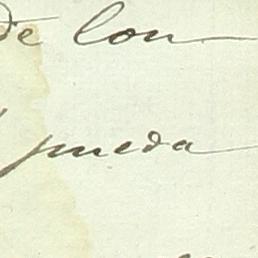 de con
pueda